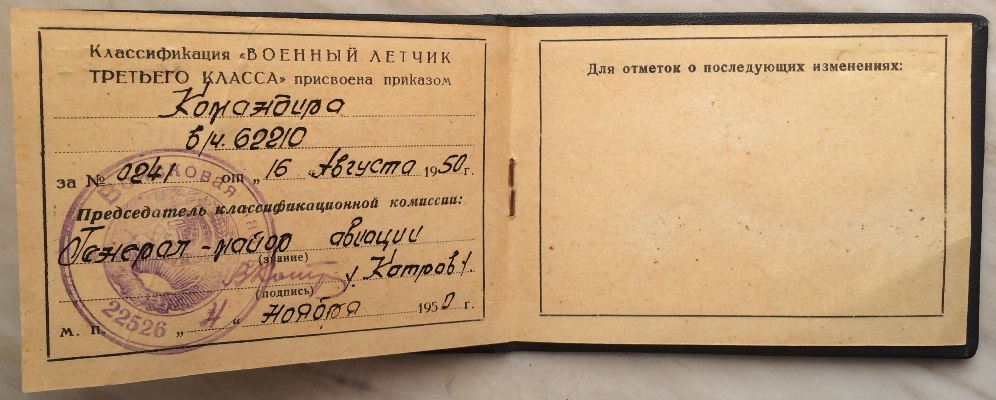 Классификация «ВОЕННЫЙ ЛЕТЧИК
ТРЕТЬЕГО КЛАССА» присвоена приказом
Командира
в/ч. 62210
за № 0241 от „ 16 " Августа 1950 г.
Председатель классификационной комиссии:
Генерал-майор авиации
(звание)
/Катров/.
(подпись)
м. п. „ " ноября 1950 г.
Войсковая
22526
Для отметок о последующих изменениях: